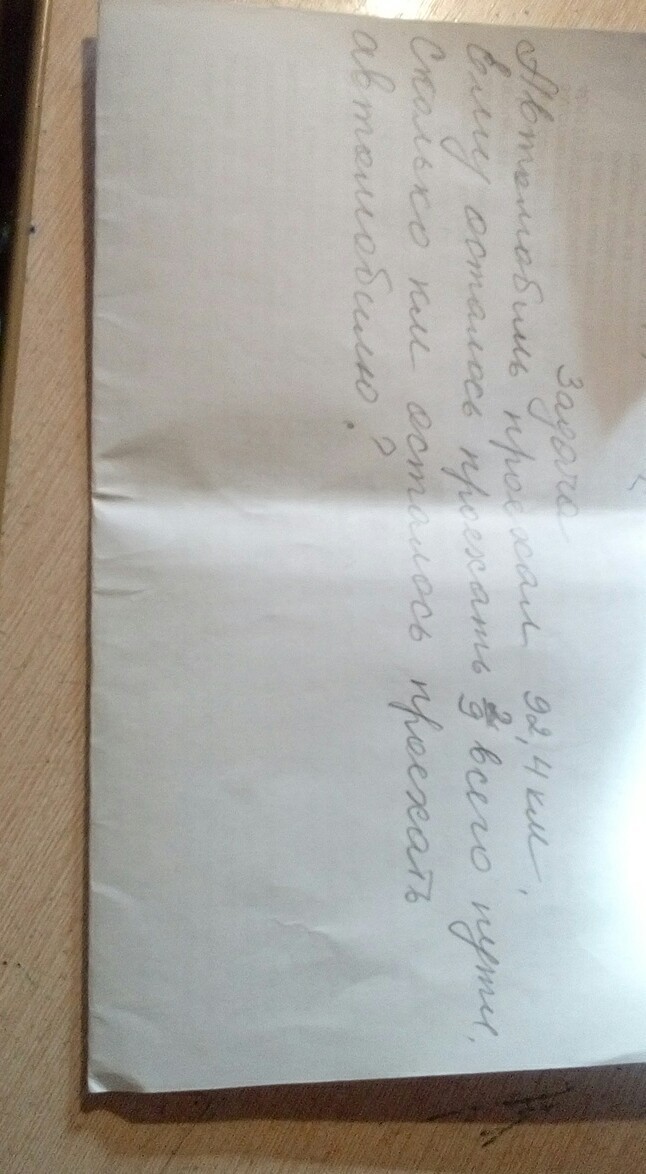 Задача
Автомобиль проехал 92,4 км,
Ему осталось проехать 2/9 всего пути.
Сколько км осталось проехать
автомобилю?